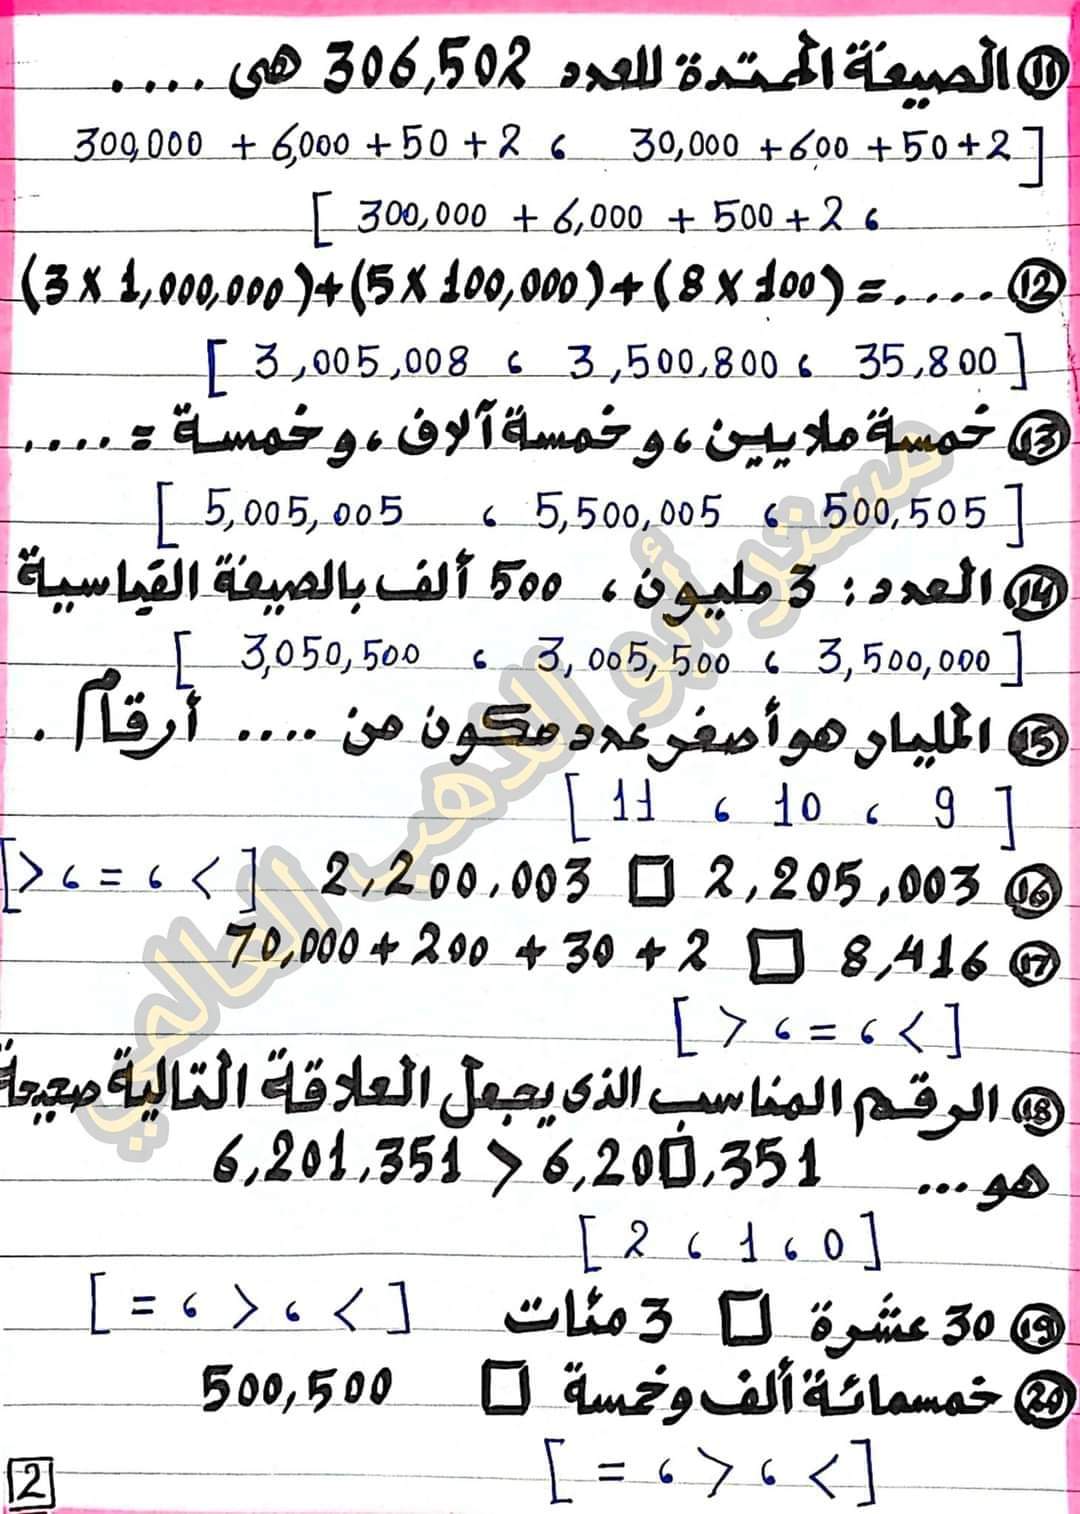 ⑪ الصيغة الممتدة للعدد 306,502 هى ....
300,000 + 6,000 + 50 + 2 ، 30,000 + 600 + 50 + 2 ]
[ 300,000 + 6,000 + 500 + 2 ،
⑫ (3 × 1,000,000) + (5 × 100,000) + (8 × 100) = .....
[ 3,005,008 ، 3,500,800 ، 35,800 ]
⑬ خمسة ملايين ، و خمسة آلاف ، و خمسة = ....
[ 5,005,005 ، 5,500,005 ، 500,505 ]
⑭ العدد : 3 مليون ، 500 ألف بالصيغة القياسية
[ 3,050,500 ، 3,005,500 ، 3,500,000 ]
⑮ المليار هو أصغر عدد مكون من .... أرقام .
[ 11 ، 10 ، 9 ]
⑯ 2,200,003 □ 2,205,003 [ > ، = ، < ]
⑰ 70,000 + 200 + 30 + 2 □ 8,416
[ > ، = ، < ]
⑱ الرقم المناسب الذى يجعل العلاقة التالية صحيحة
هو ... 6,201,351 > 6,20□,351
[ 2 ، 1 ، 0 ]
⑲ 30 عشرة □ 3 مئات [ = ، > ، < ]
⑳ خمسمائة ألف و خمسة □ 500,500
[ = ، > ، < ]
2
مستر أبو الدهب العالمي